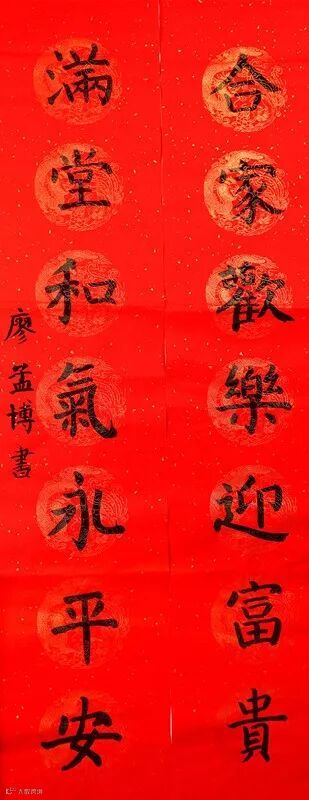 合家歡樂迎富貴
滿堂和氣永平安
廖孟博書